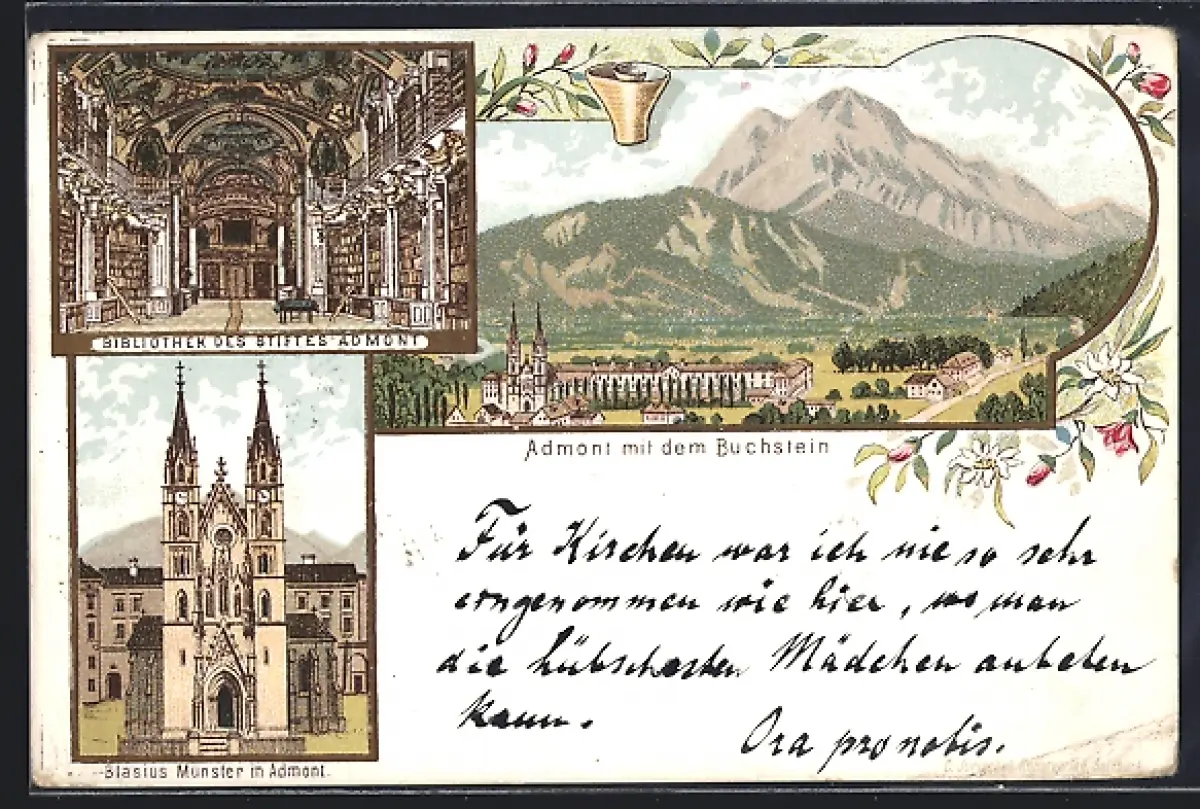 BIBLIOTHEK DES STIFTES ADMONT
Admont mit dem Buchstein
Blasius Münster in Admont.
Für Kirchen war ich nie so sehr
eingenommen wie hier, wo man
die hübschesten Mädchen anbeten
kann.
Ora pro nobis.